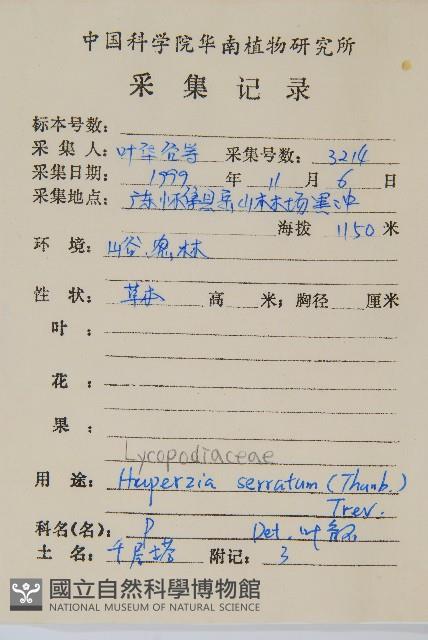 中国科学院华南植物研究所
采集记录
标本号数:
采集人: 叶华谷等 采集号数: 3214
采集日期: 1999 年 11 月 6 日
采集地点: 广东怀集县 山林场
海拔 1150 米
环境: 山谷,密林
性状: 草本 高 米; 胸径 厘米
叶:
花:
果:
Lycopodiaceae
用途: Huperzia serratum (Thunb.)
Trev.
科名(名): P Det. 叶
土名: 千层塔 附记: 3
國立自然科學博物館
NATIONAL MUSEUM OF NATURAL SCIENCE